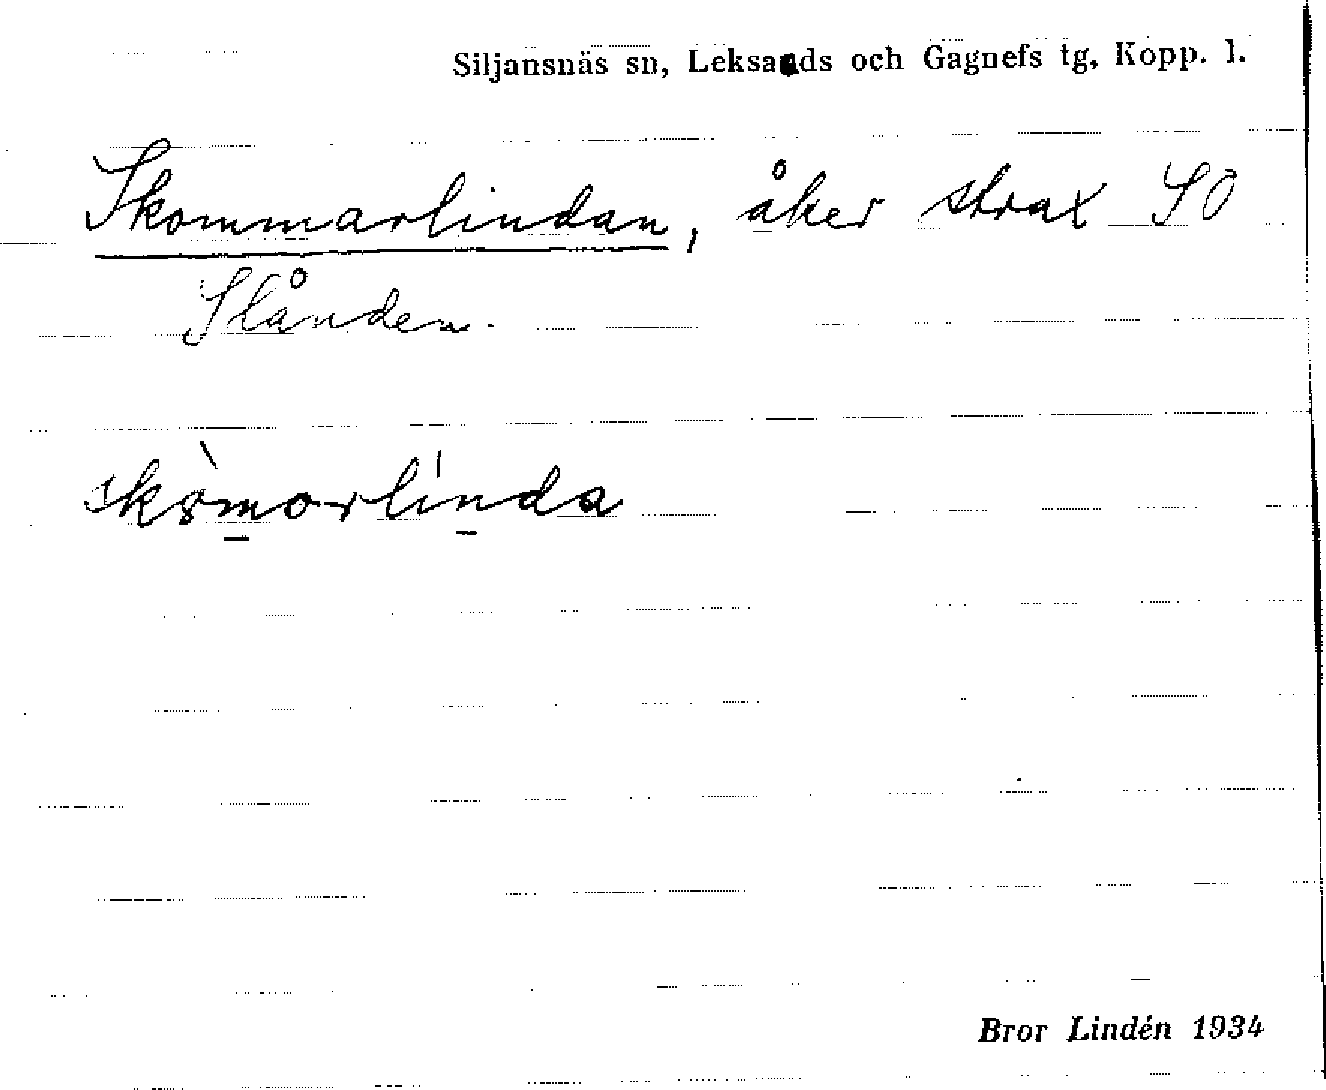 Siljansnäs sn, Leksands och Gagnefs tg, Kopp. l.
Skommarlindan, åker strax SO
Slånden.
skòmorlinda
Bror Lindén 1934